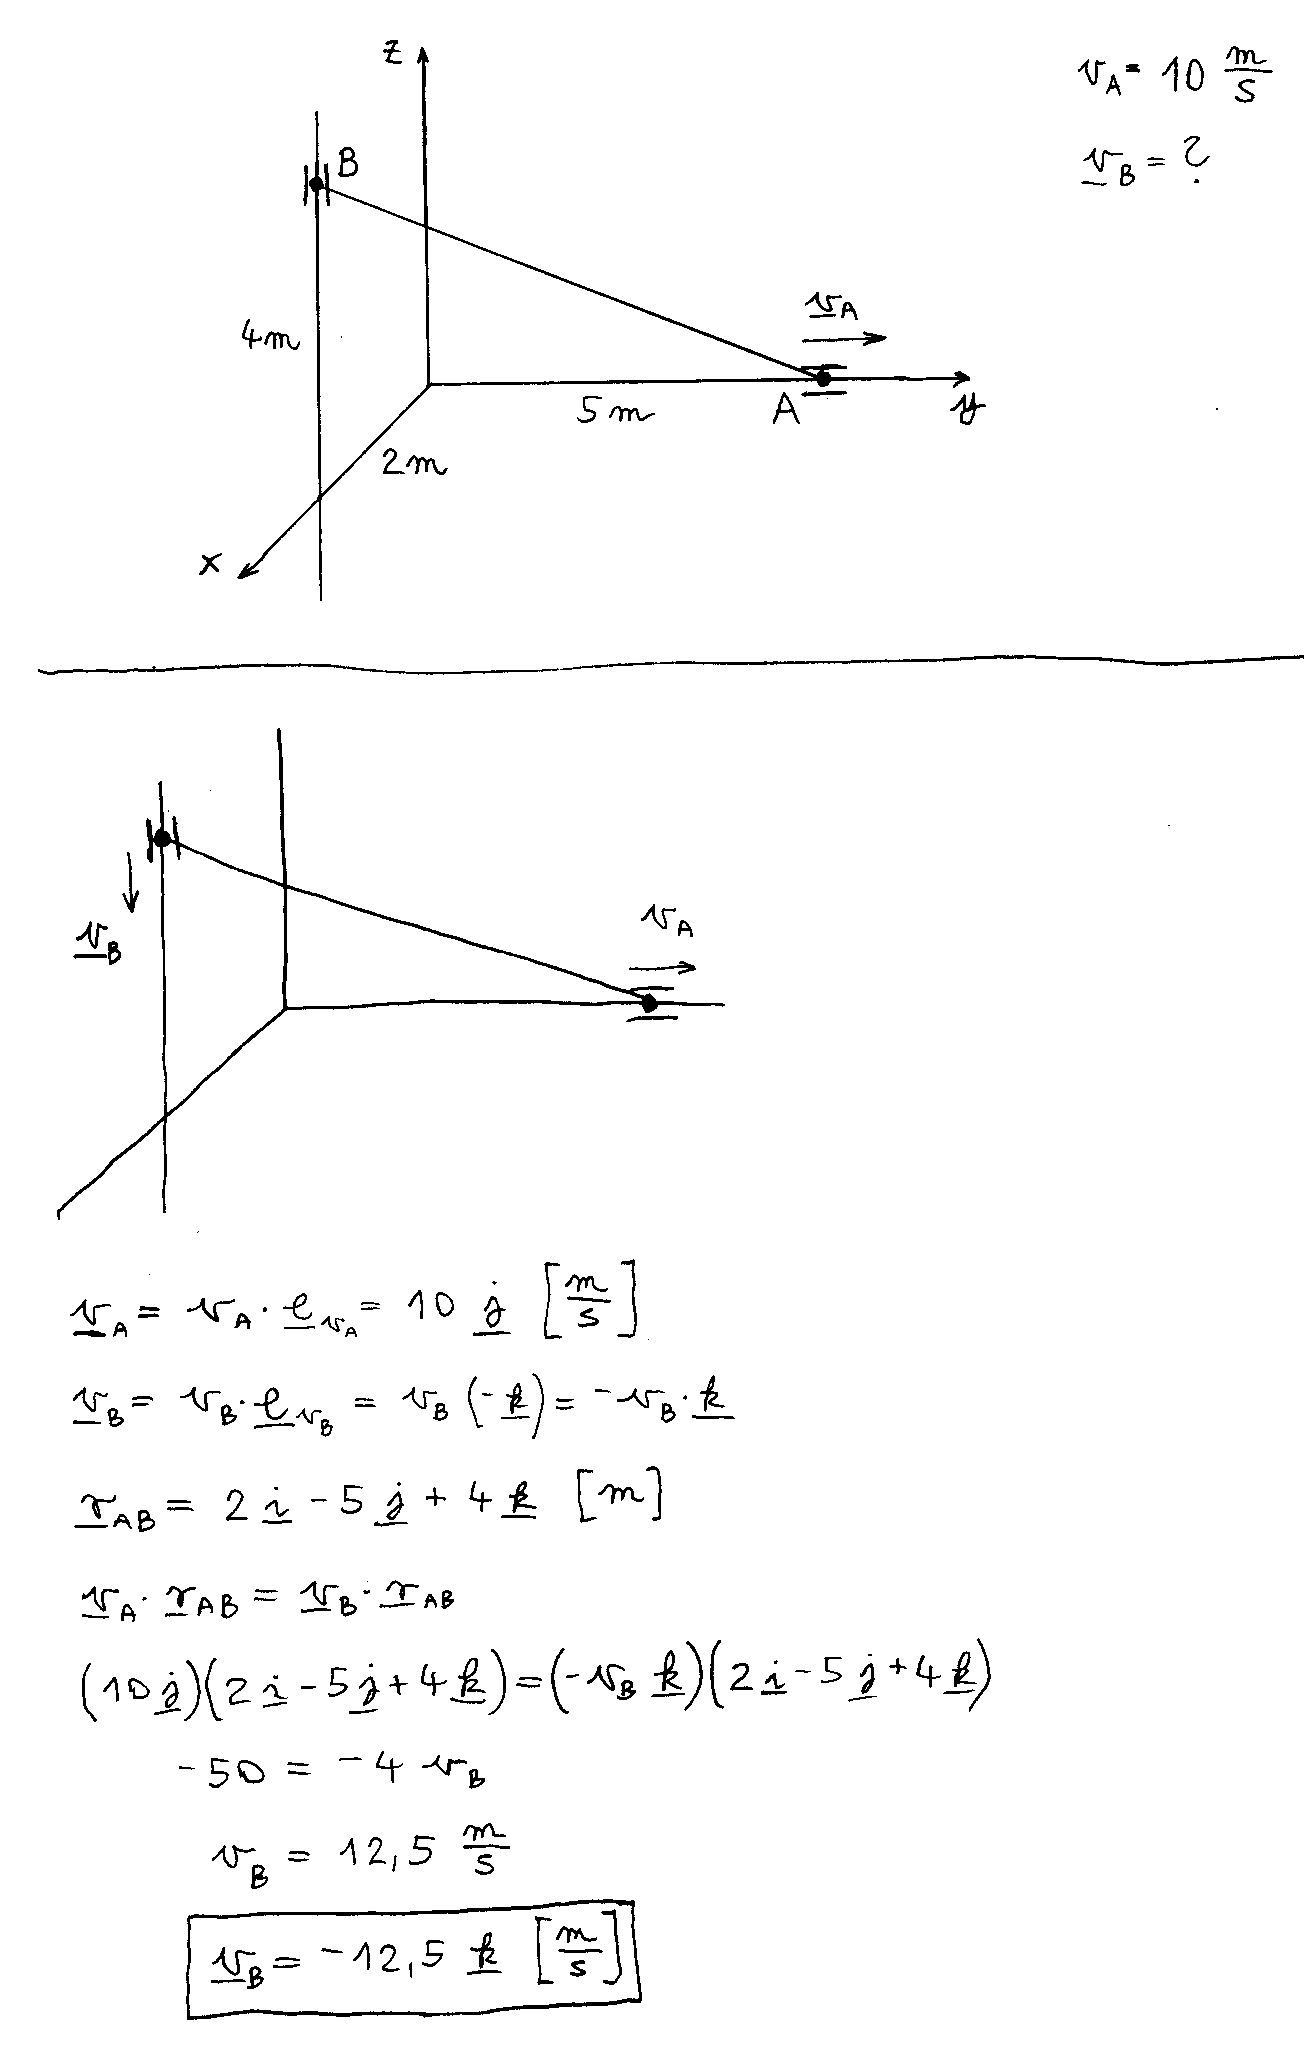 z
v_A = 10 m/s
B
v_B = ?
v_A
4m
5m
A
y
2m
x
v_A
v_B
v_A = v_A · e_vA = 10 j [m/s]
v_B = v_B · e_vB = v_B (-k) = -v_B · k
r_AB = 2 i - 5 j + 4 k [m]
v_A · r_AB = v_B · r_AB
(10 j)(2 i - 5 j + 4 k) = (-v_B k)(2 i - 5 j + 4 k)
-50 = -4 v_B
v_B = 12,5 m/s
v_B = -12,5 k [m/s]